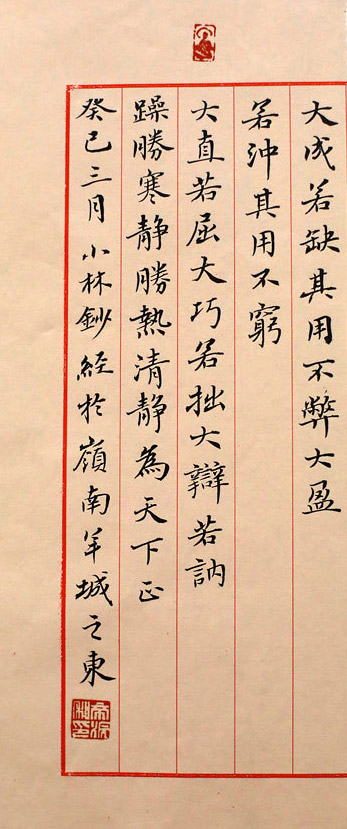 大成若缺其用不弊大盈
若沖其用不窮
大直若屈大巧若拙大辯若訥
躁勝寒静勝熱清静為天下正
癸巳三月小林鈔經於嶺南羊城之東